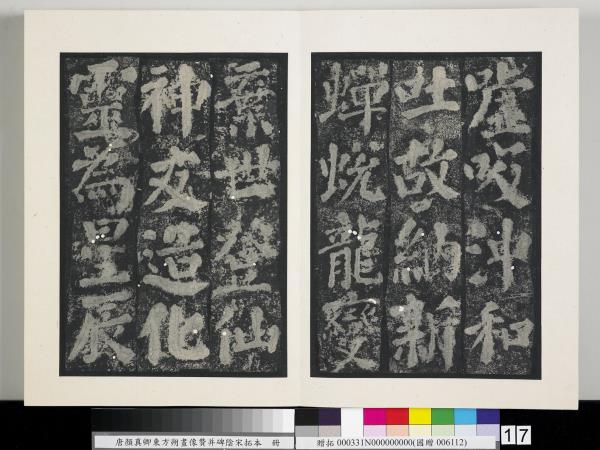 噓吸沖和
吐故納新
蟬蛻龍變
棄世登仙
神友造化
靈為星辰
唐顏真卿東方朔畫像贊并碑陰宋拓本 冊
贈拓 000331N000000000(國贈 006112)
17